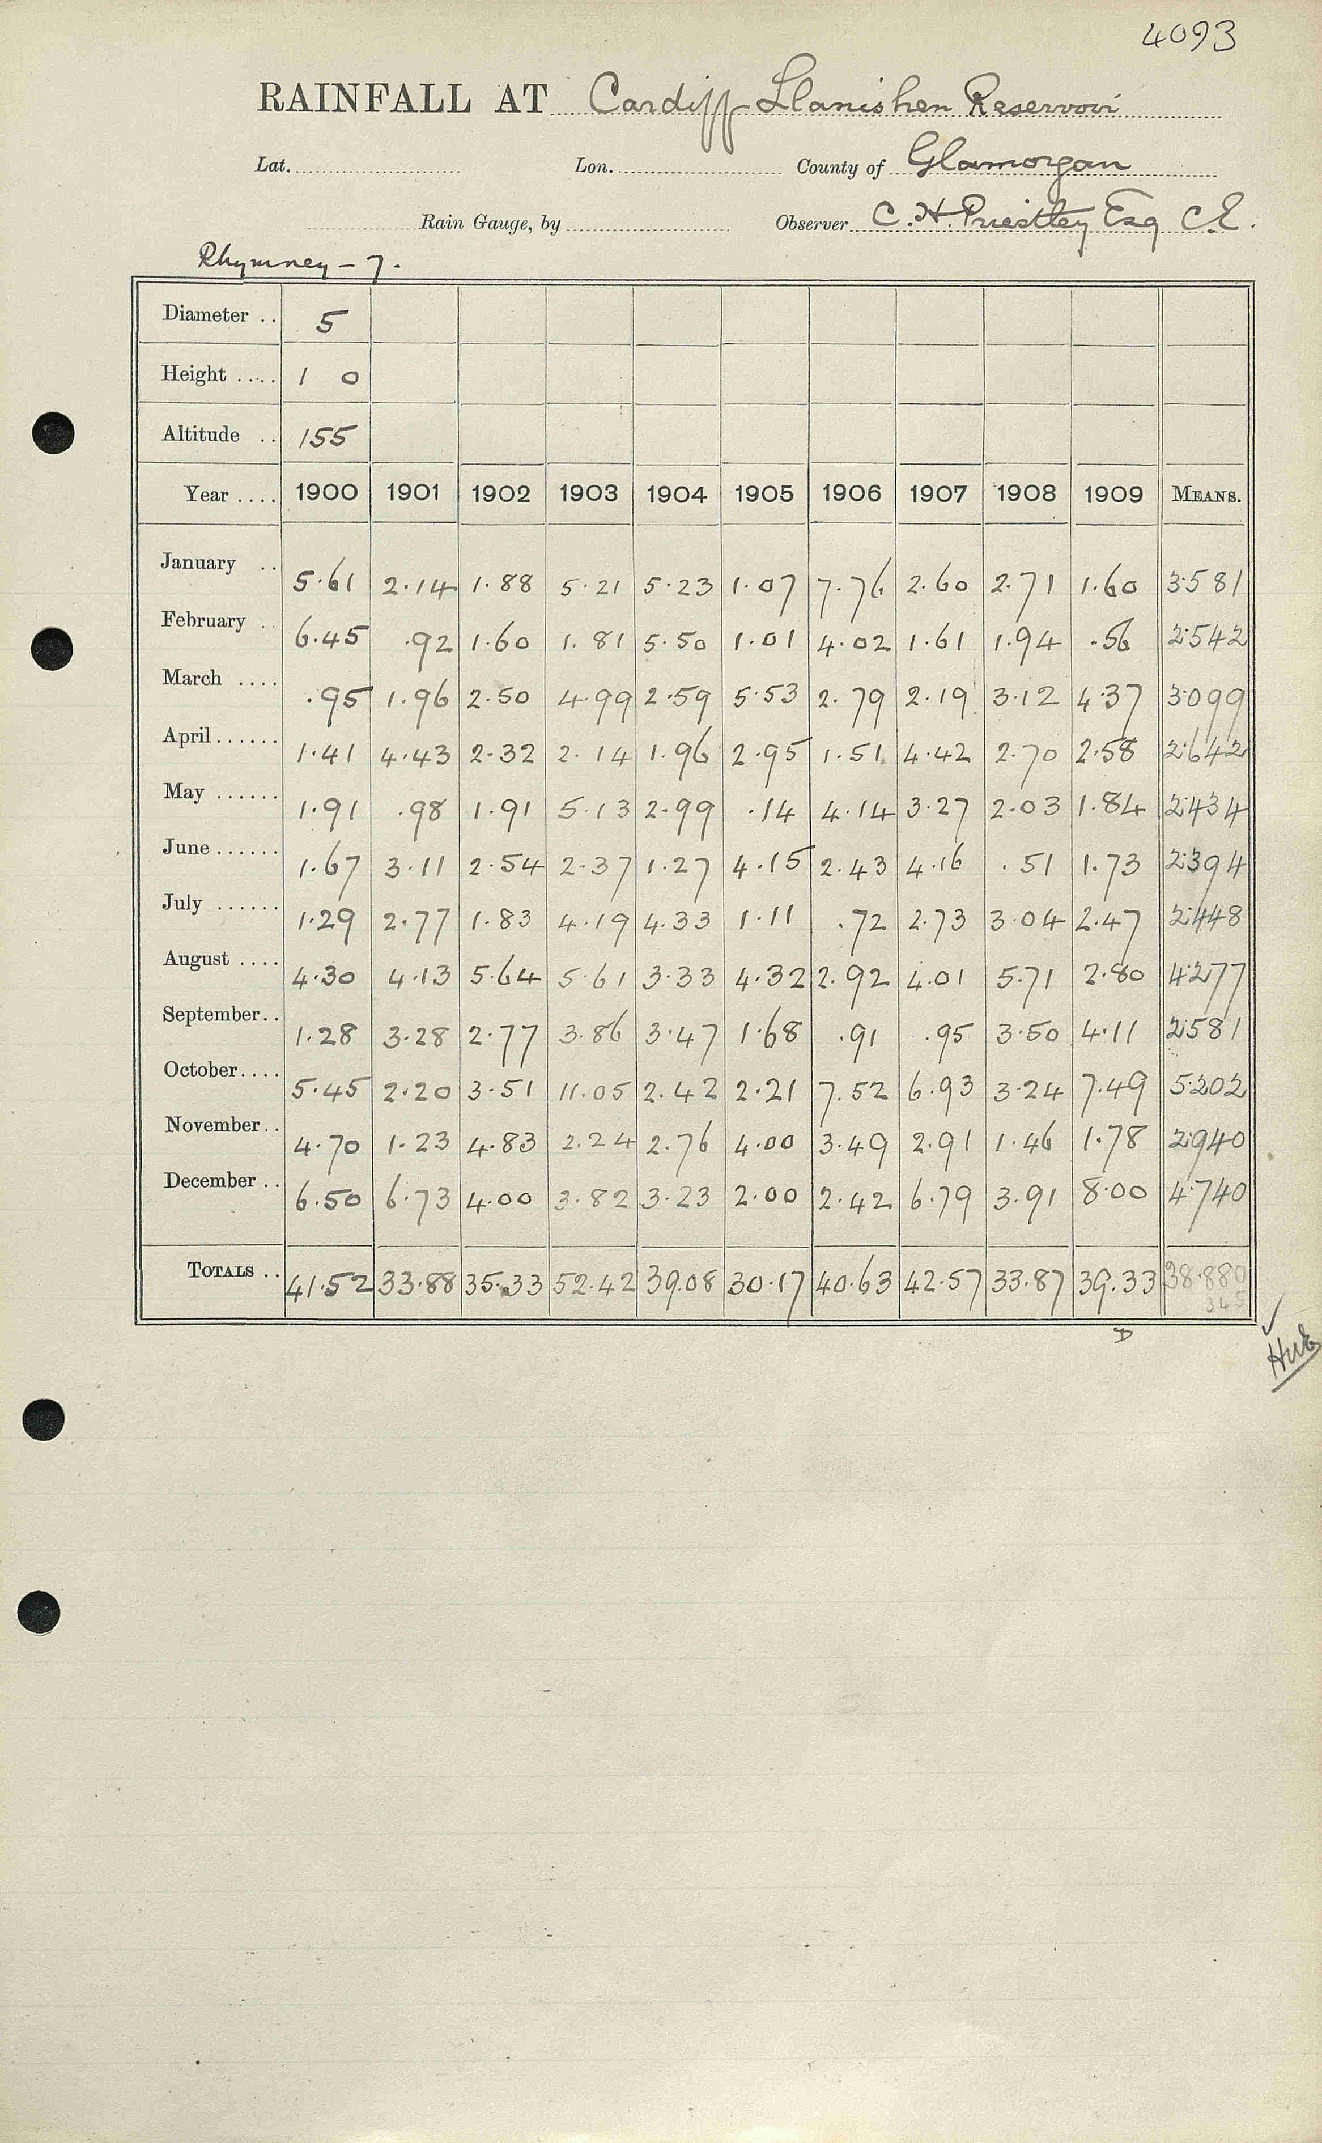 4093
RAINFALL AT Cardiff Llanishen Reservoir
Lat. Lon. County of Glamorgan
Rain Gauge, by Observer C. H. Priestley Esq C.E.
Rhymney - 7.
Diameter .. 5
Height ..... 1 0
Altitude .. 155
Year .... 1900 1901 1902 1903 1904 1905 1906 1907 1908 1909 MEANS.
January .. 5.61 2.14 1.88 5.21 5.23 1.07 7.76 2.60 2.71 1.60 3.581
February . 6.45 .92 1.60 1.81 5.50 1.01 4.02 1.61 1.94 .56 2.542
March .... .95 1.96 2.50 4.99 2.59 5.53 2.79 2.19 3.12 4.37 3.099
April...... 1.41 4.43 2.32 2.14 1.96 2.95 1.51 4.42 2.70 2.58 2.642
May ...... 1.91 .98 1.91 5.13 2.99 .14 4.14 3.27 2.03 1.84 2.434
June...... 1.67 3.11 2.54 2.37 1.27 4.15 2.43 4.16 .51 1.73 2.394
July ...... 1.29 2.77 1.83 4.19 4.33 1.11 .72 2.73 3.04 2.47 2.448
August .... 4.30 4.13 5.64 5.61 3.33 4.32 2.92 4.01 5.71 2.80 4.277
September.. 1.28 3.28 2.77 3.86 3.47 1.68 .91 .95 3.50 4.11 2.581
October.... 5.45 2.20 3.51 11.05 2.42 2.21 7.52 6.93 3.24 7.49 5.202
November.. 4.70 1.23 4.83 2.24 2.76 4.00 3.49 2.91 1.46 1.78 2.940
December .. 6.50 6.73 4.00 3.82 3.23 2.00 2.42 6.79 3.91 8.00 4.740
TOTALS .. 41.52 33.88 35.33 52.42 39.08 30.17 40.63 42.57 33.87 39.33 38.880
345
D